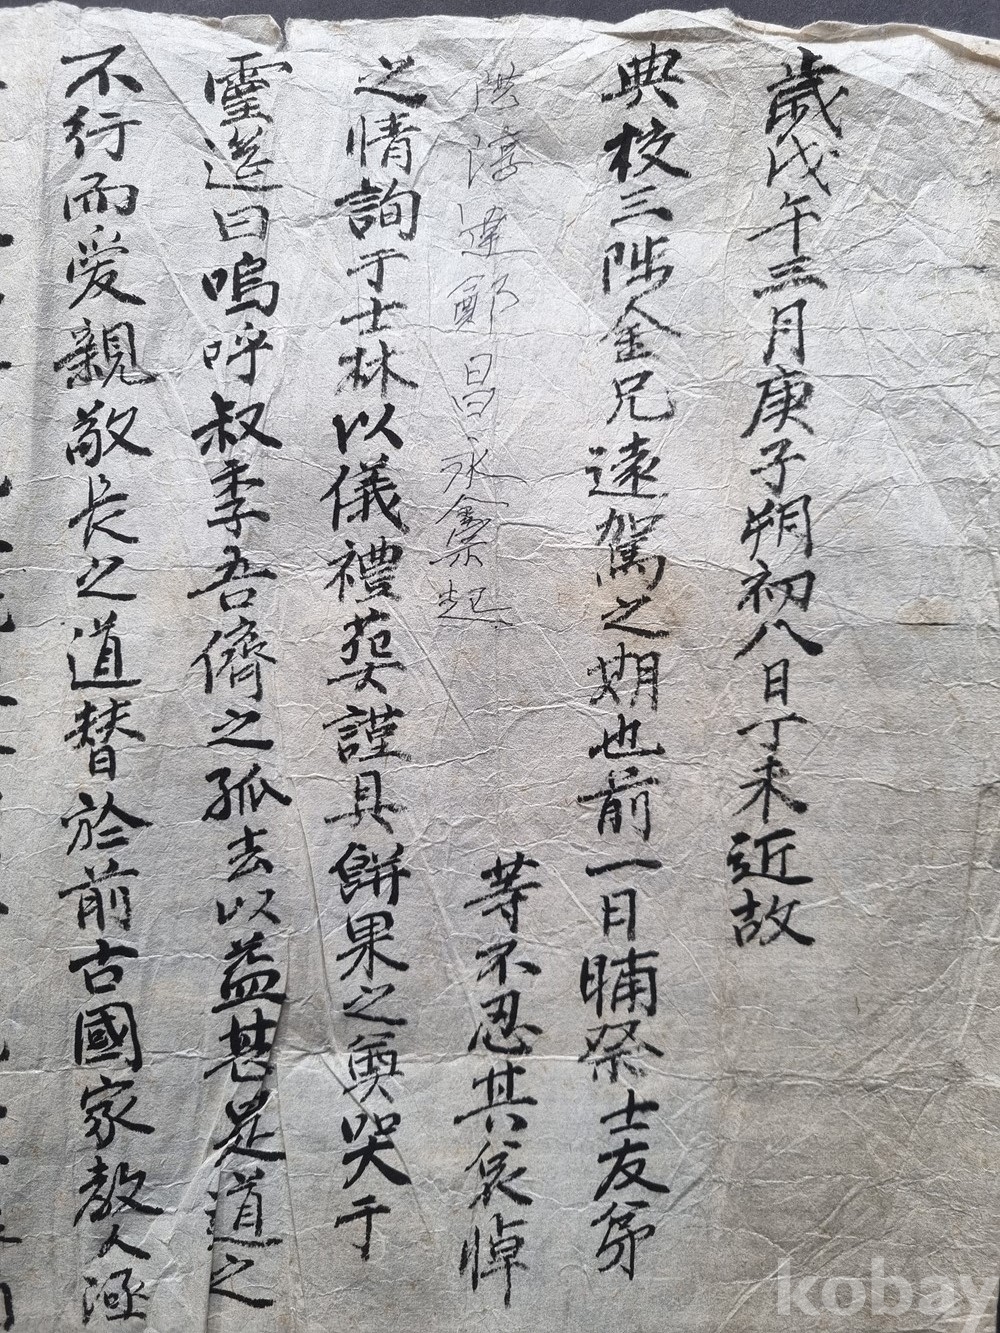 歲戊午三月庚子朔初八日丁未近故
典校三陟金兄遠駕之期也前一日晡祭士友弟
洪淳 鄭昌永 起
等不忍其哀悼
之情詢于士林以儀禮 謹具餠果之奠哭于
靈筵曰嗚呼叔季吾儕之孤去以益甚是道之
不行而愛親敬長之道替於前古國家敎人
kobay